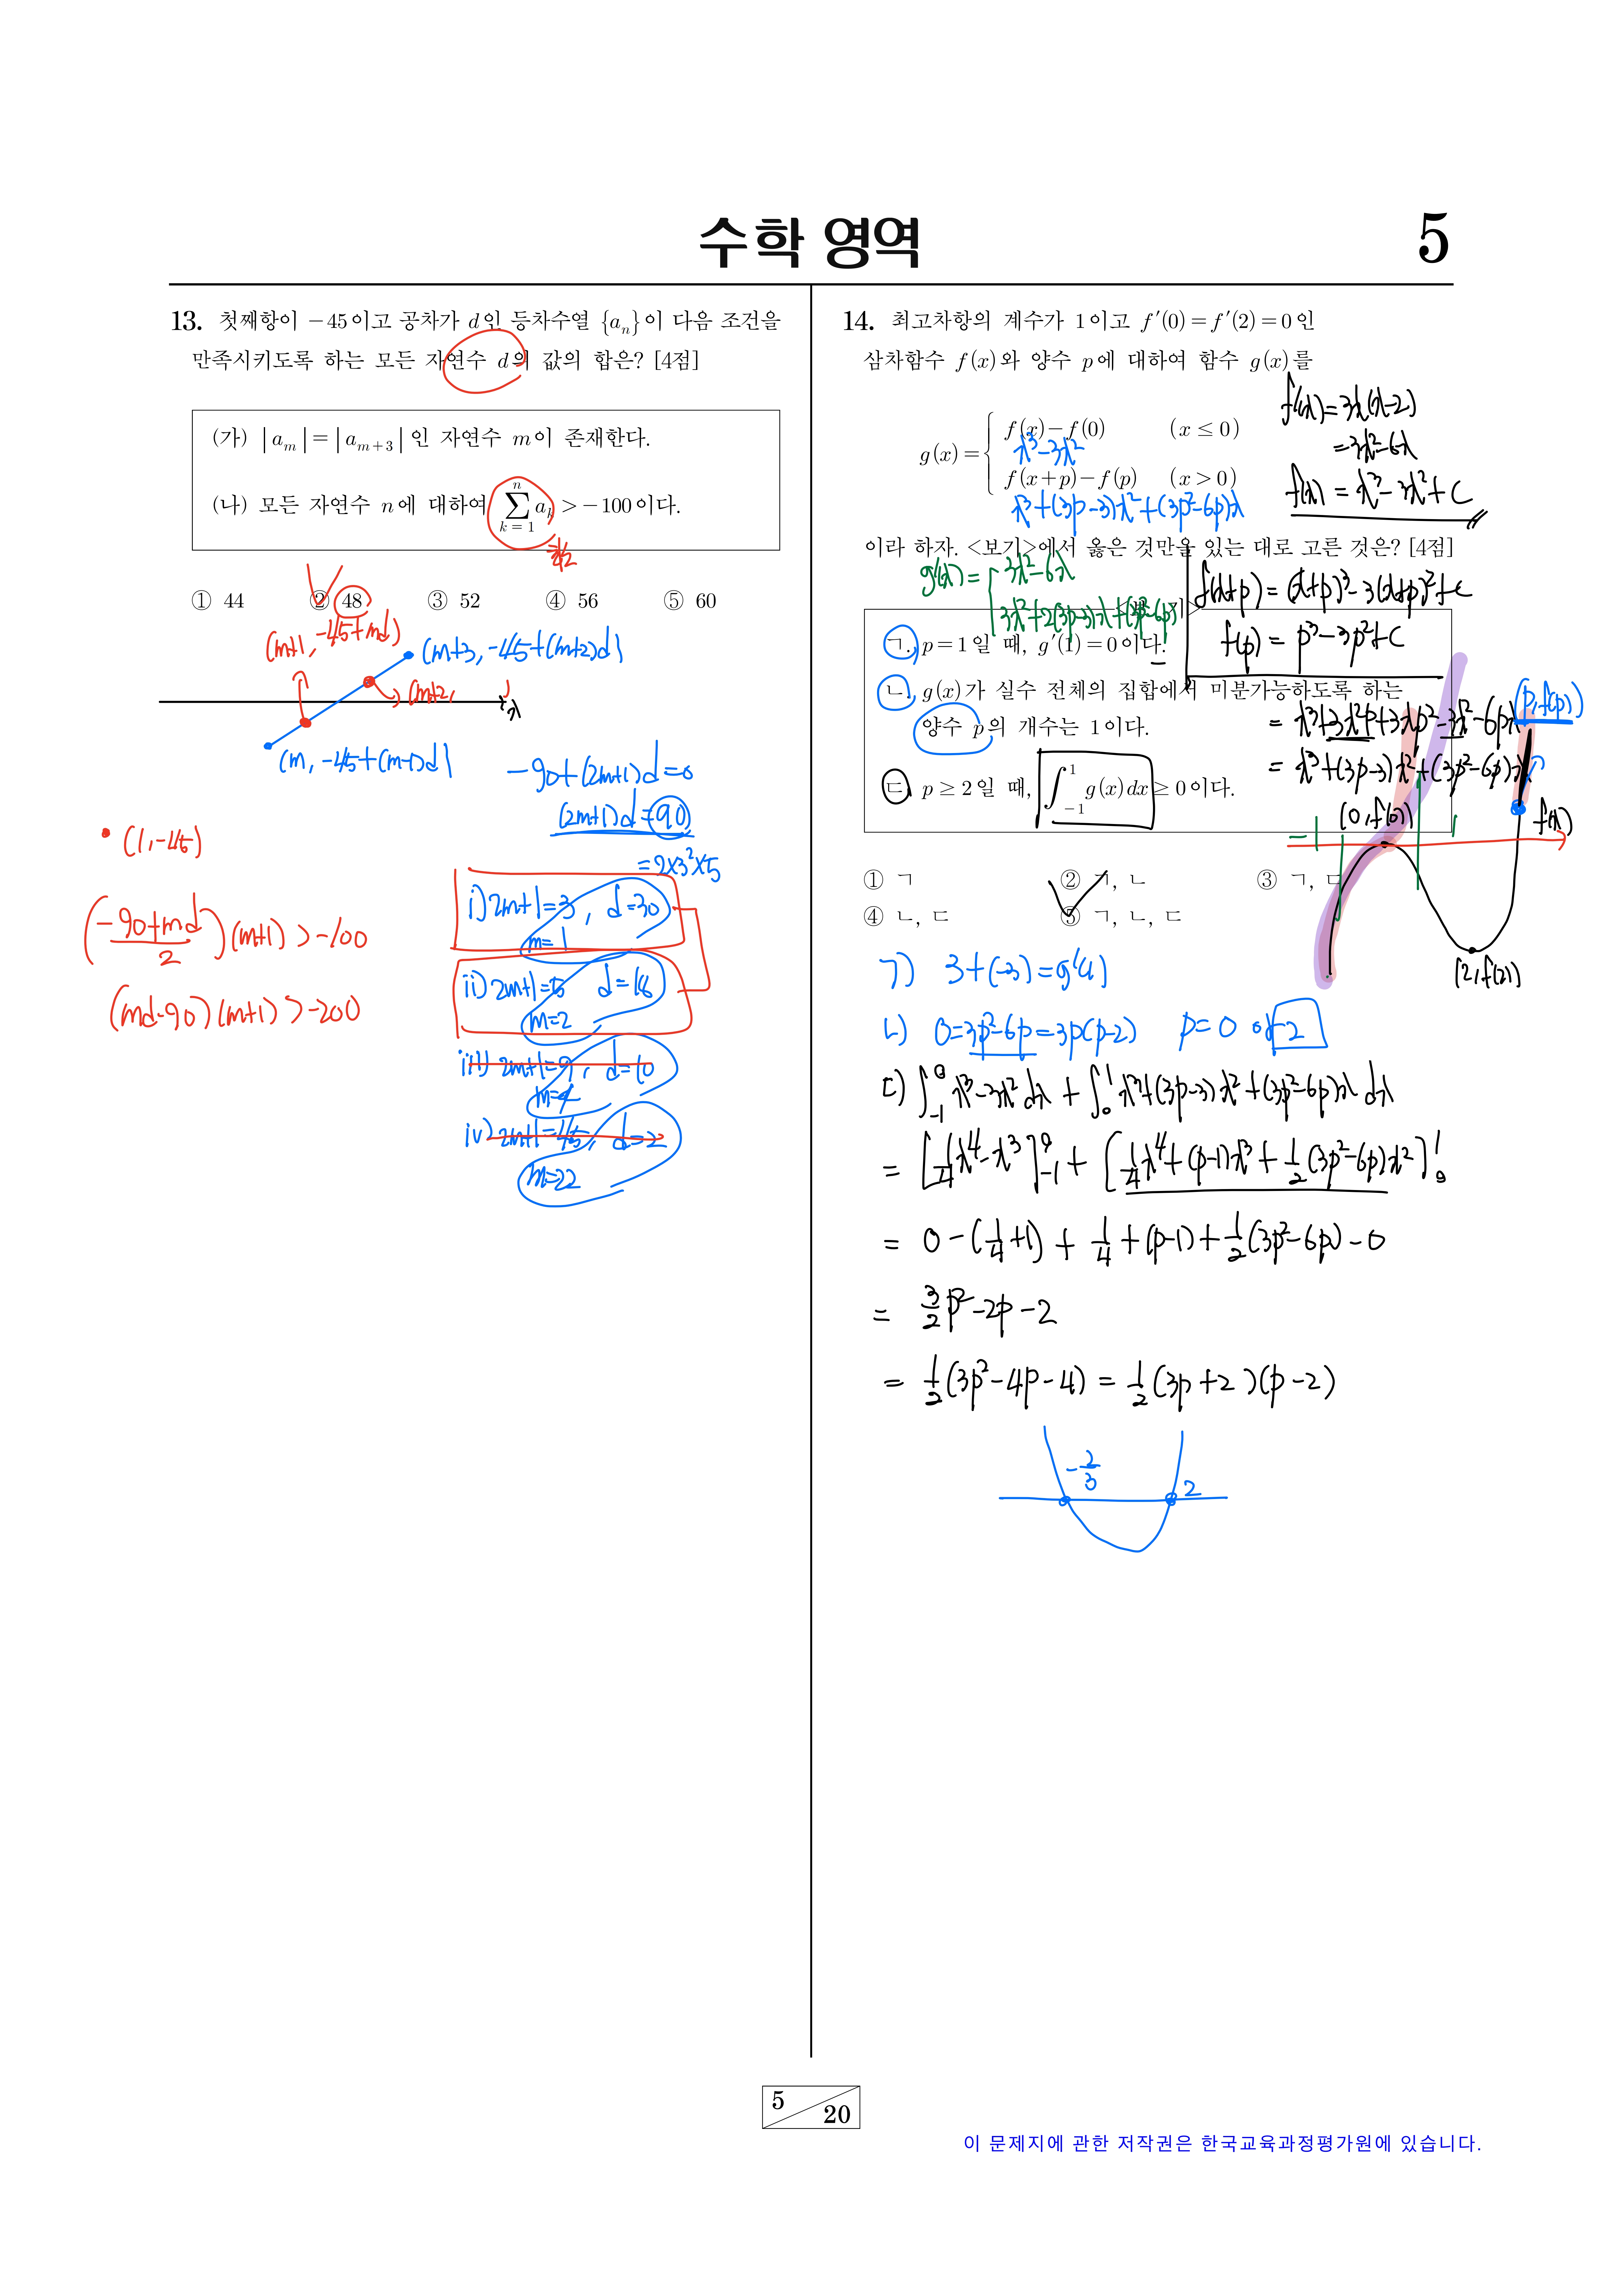 수학 영역
5
13. 첫째항이 -45이고 공차가 d인 등차수열 {aₙ}이 다음 조건을
만족시키도록 하는 모든 자연수 d의 값의 합은? [4점]
(가) |aₘ| = |aₘ₊₃| 인 자연수 m이 존재한다.
(나) 모든 자연수 n에 대하여 ∑_{k=1}^{n} aₖ > -100이다.
① 44 ② 48 ③ 52 ④ 56 ⑤ 60
(m+1, -45+md)
(m+3, -45+(m+2)d)
(m+2, )
x
(m, -45+(m-1)d)
-90+(2m+1)d=0
(2m+1)d=90
=2×3²×5
(1, -45)
((-90+md)/2)(m+1) > -100
(md-90)(m+1) > -200
i) 2m+1=3, d=30
m=1
ii) 2m+1=5 d=18
m=2
iii) 2m+1=9, d=10
m=4
iv) 2m+1=45, d=2
m=22
14. 최고차항의 계수가 1이고 f′(0)=f′(2)=0인
삼차함수 f(x)와 양수 p에 대하여 함수 g(x)를
g(x)= { f(x)-f(0) (x≤0)
x³-3x²
f(x+p)-f(p) (x>0)
x³+(3p-3)x²+(3p²-6p)x
f′(x)=3x(x-2)
=3x²-6x
f(x)=x³-3x²+C
이라 하자. <보기>에서 옳은 것만을 있는 대로 고른 것은? [4점]
g′(x)= { 3x²-6x
3x²+2(3p-3)x+(3p²-6p)
f(x+p)=(x+p)³-3(x+p)²+C
f(p)=p³-3p²+C
ㄱ. p=1일 때, g′(1)=0이다.
ㄴ. g(x)가 실수 전체의 집합에서 미분가능하도록 하는
양수 p의 개수는 1이다.
ㄷ. p≥2일 때, ∫_{-1}^{1} g(x)dx≥0이다.
= x³+3x²p+3xp²-3x²-6px
= x³+(3p-3)x²+(3p²-6p)x
(p, f(p))
(0, f(0))
f(x)
-1
1
(2, f(2))
① ㄱ ② ㄱ, ㄴ ③ ㄱ, ㄷ
④ ㄴ, ㄷ ⑤ ㄱ, ㄴ, ㄷ
ㄱ) 3+(-3)=g′(1)
ㄴ) 0=3p²-6p=3p(p-2) p=0 or 2
ㄷ) ∫_{-1}^{0} x³-3x² dx + ∫_{0}^{1} x³+(3p-3)x²+(3p²-6p)x dx
= [1/4x⁴-x³]_{-1}^{0} + [1/4x⁴+(p-1)x³+1/2(3p²-6p)x²]_{0}^{1}
= 0-(1/4+1)+1/4+(p-1)+1/2(3p²-6p)-0
= 3/2p²-2p-2
= 1/2(3p²-4p-4)=1/2(3p+2)(p-2)
-2/3
2
5
20
이 문제지에 관한 저작권은 한국교육과정평가원에 있습니다.